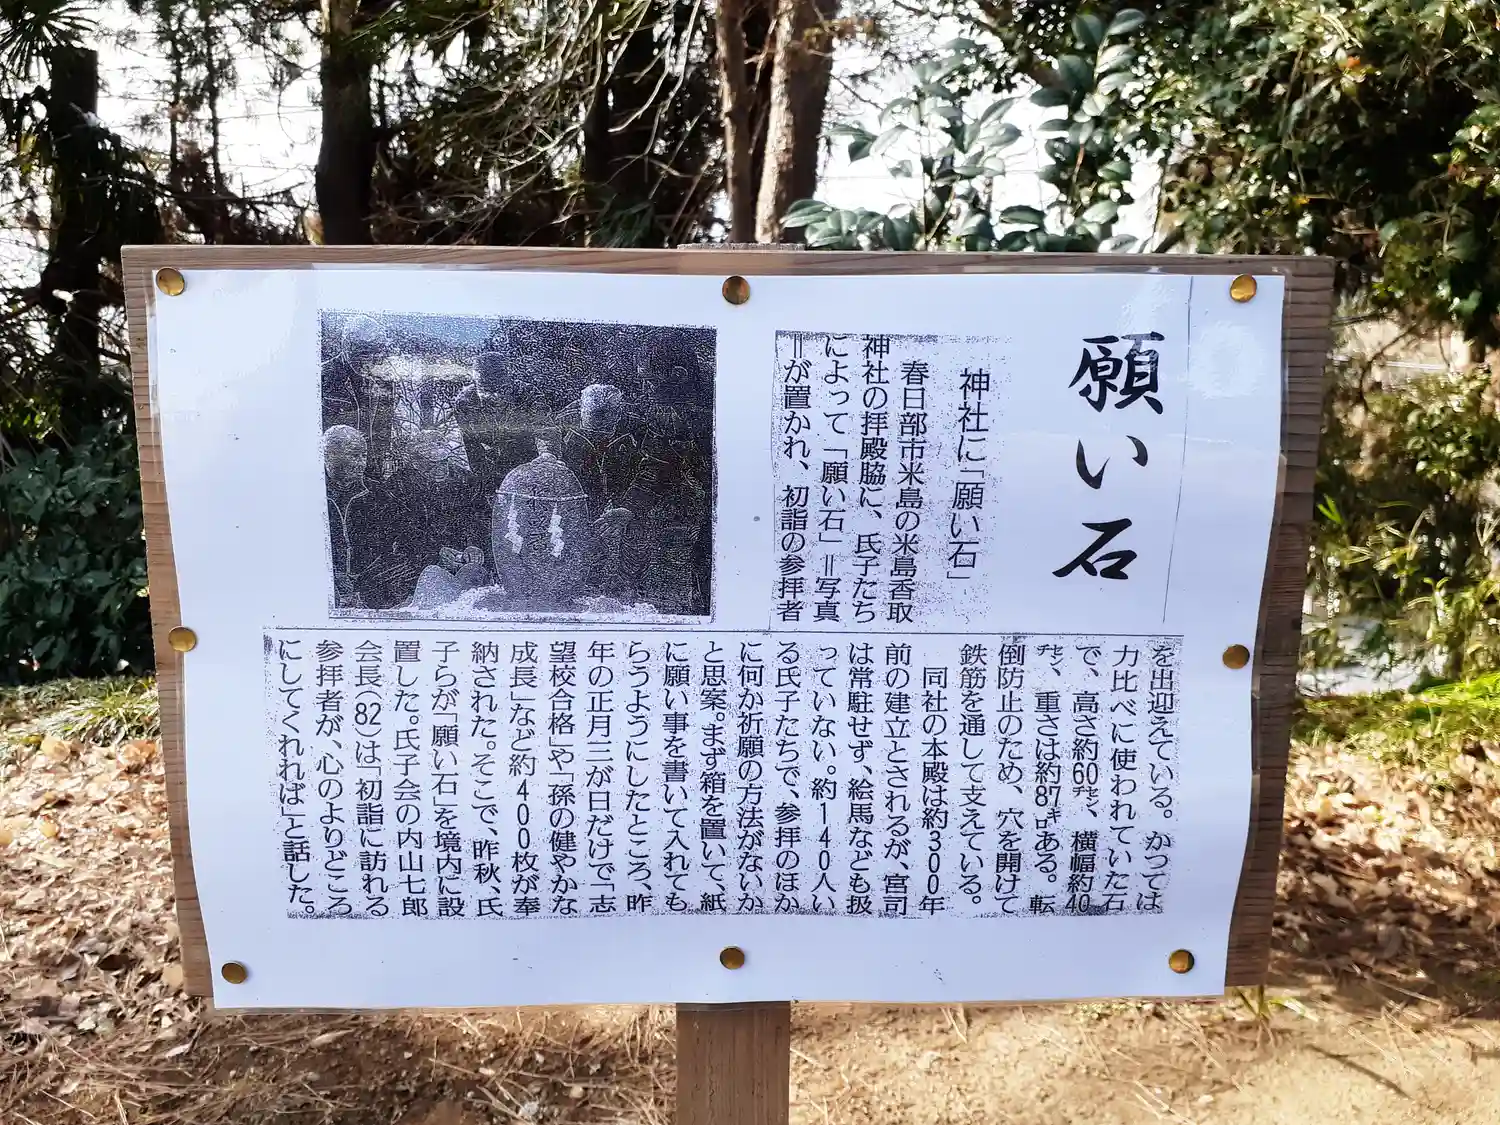 願い石
神社に「願い石」
春日部市米島の米島香取
神社の拝殿脇に、氏子たち
によって「願い石」＝写真
＝が置かれ、初詣の参拝者
を出迎えている。かつては
力比べに使われていた石
で、高さ約60㌢、横幅約40
㌢、重さは約87㌔ある。転
倒防止のため、穴を開けて
鉄筋を通して支えている。
同社の本殿は約300年
前の建立とされるが、宮司
は常駐せず、絵馬なども扱
っていない。約140人い
る氏子たちで、参拝のほか
に何か祈願の方法がないか
と思案。まず箱を置いて、紙
に願い事を書いて入れても
らうようにしたところ、昨
年の正月三が日だけで「志
望校合格」や「孫の健やかな
成長」など約400枚が奉
納された。そこで、昨秋、氏
子らが「願い石」を境内に設
置した。氏子会の内山七郎
会長(82)は「初詣に訪れる
参拝者が、心のよりどころ
にしてくれれば」と話した。